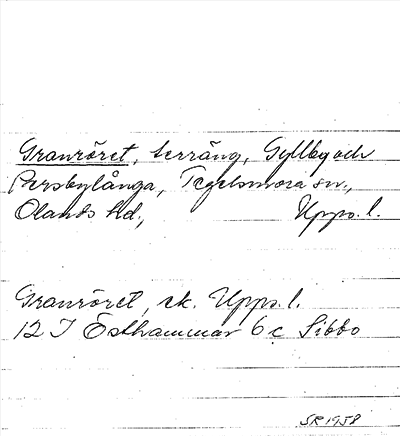 Granröret, terräng, Gyllby och
Persbylånga, Tegelsmora sn.,
Olands hd., Upps. l.
Granröret, ek. Upps. l.
12 I Östhammar 6 c Sibbo
SR 1958